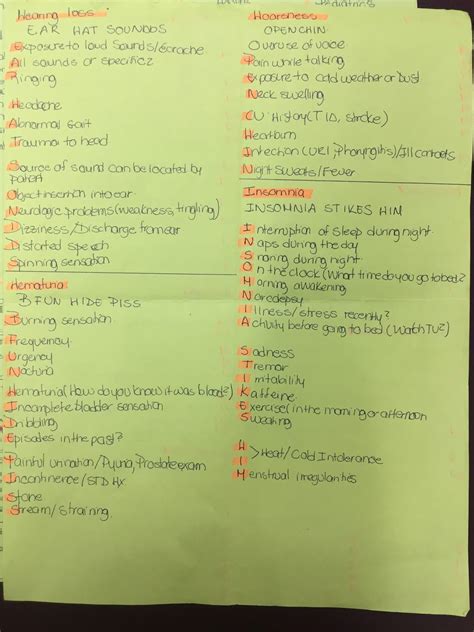 Hearing loss
EAR HAT SOUNDDS
Exposure to loud sounds/Earache
All sounds or specific?
Ringing
Headache
Abnormal Gait
Trauma to head
Source of sound can be located by
patient
Object insertion into ear
Neurologic problems (weakness, tingling)
Dizziness/Discharge from ear
Distorted speech
Spinning sensation
Hematuria
BFUN HIDE PISS
Burning sensation
Frequency
Urgency
Nocturia
Hematuria (How do you know it was blood?)
Incomplete bladder sensation
Dribbling
Episodes in the past?
Painful urination/Pyuria, Prostate exam
Incontinence/STD Hx
Stone
Stream/straining.
Hoarseness
OPEN CHIN
Overuse of voice
Pain while talking
Exposure to cold weather or Dust
Neck swelling
History (TIA, stroke)
Heartburn
Infection (URI, Pharyngitis)/Ill contacts
Night sweats/Fever
Insomnia
INSOMNIA STIKES HIM
Interruption of Sleep during night
Naps during the day
Snoring during night
On the clock (What time do you go to bed?
Morning awakening
Narcolepsy
Illness/stress recently?
Activity before going to bed (Watch TV?)
Sadness
Tremor
Irritability
Kaffeine
Exercise (in the morning or afternoon
Sweating
>Heat/Cold Intolerance
Menstrual irregularities